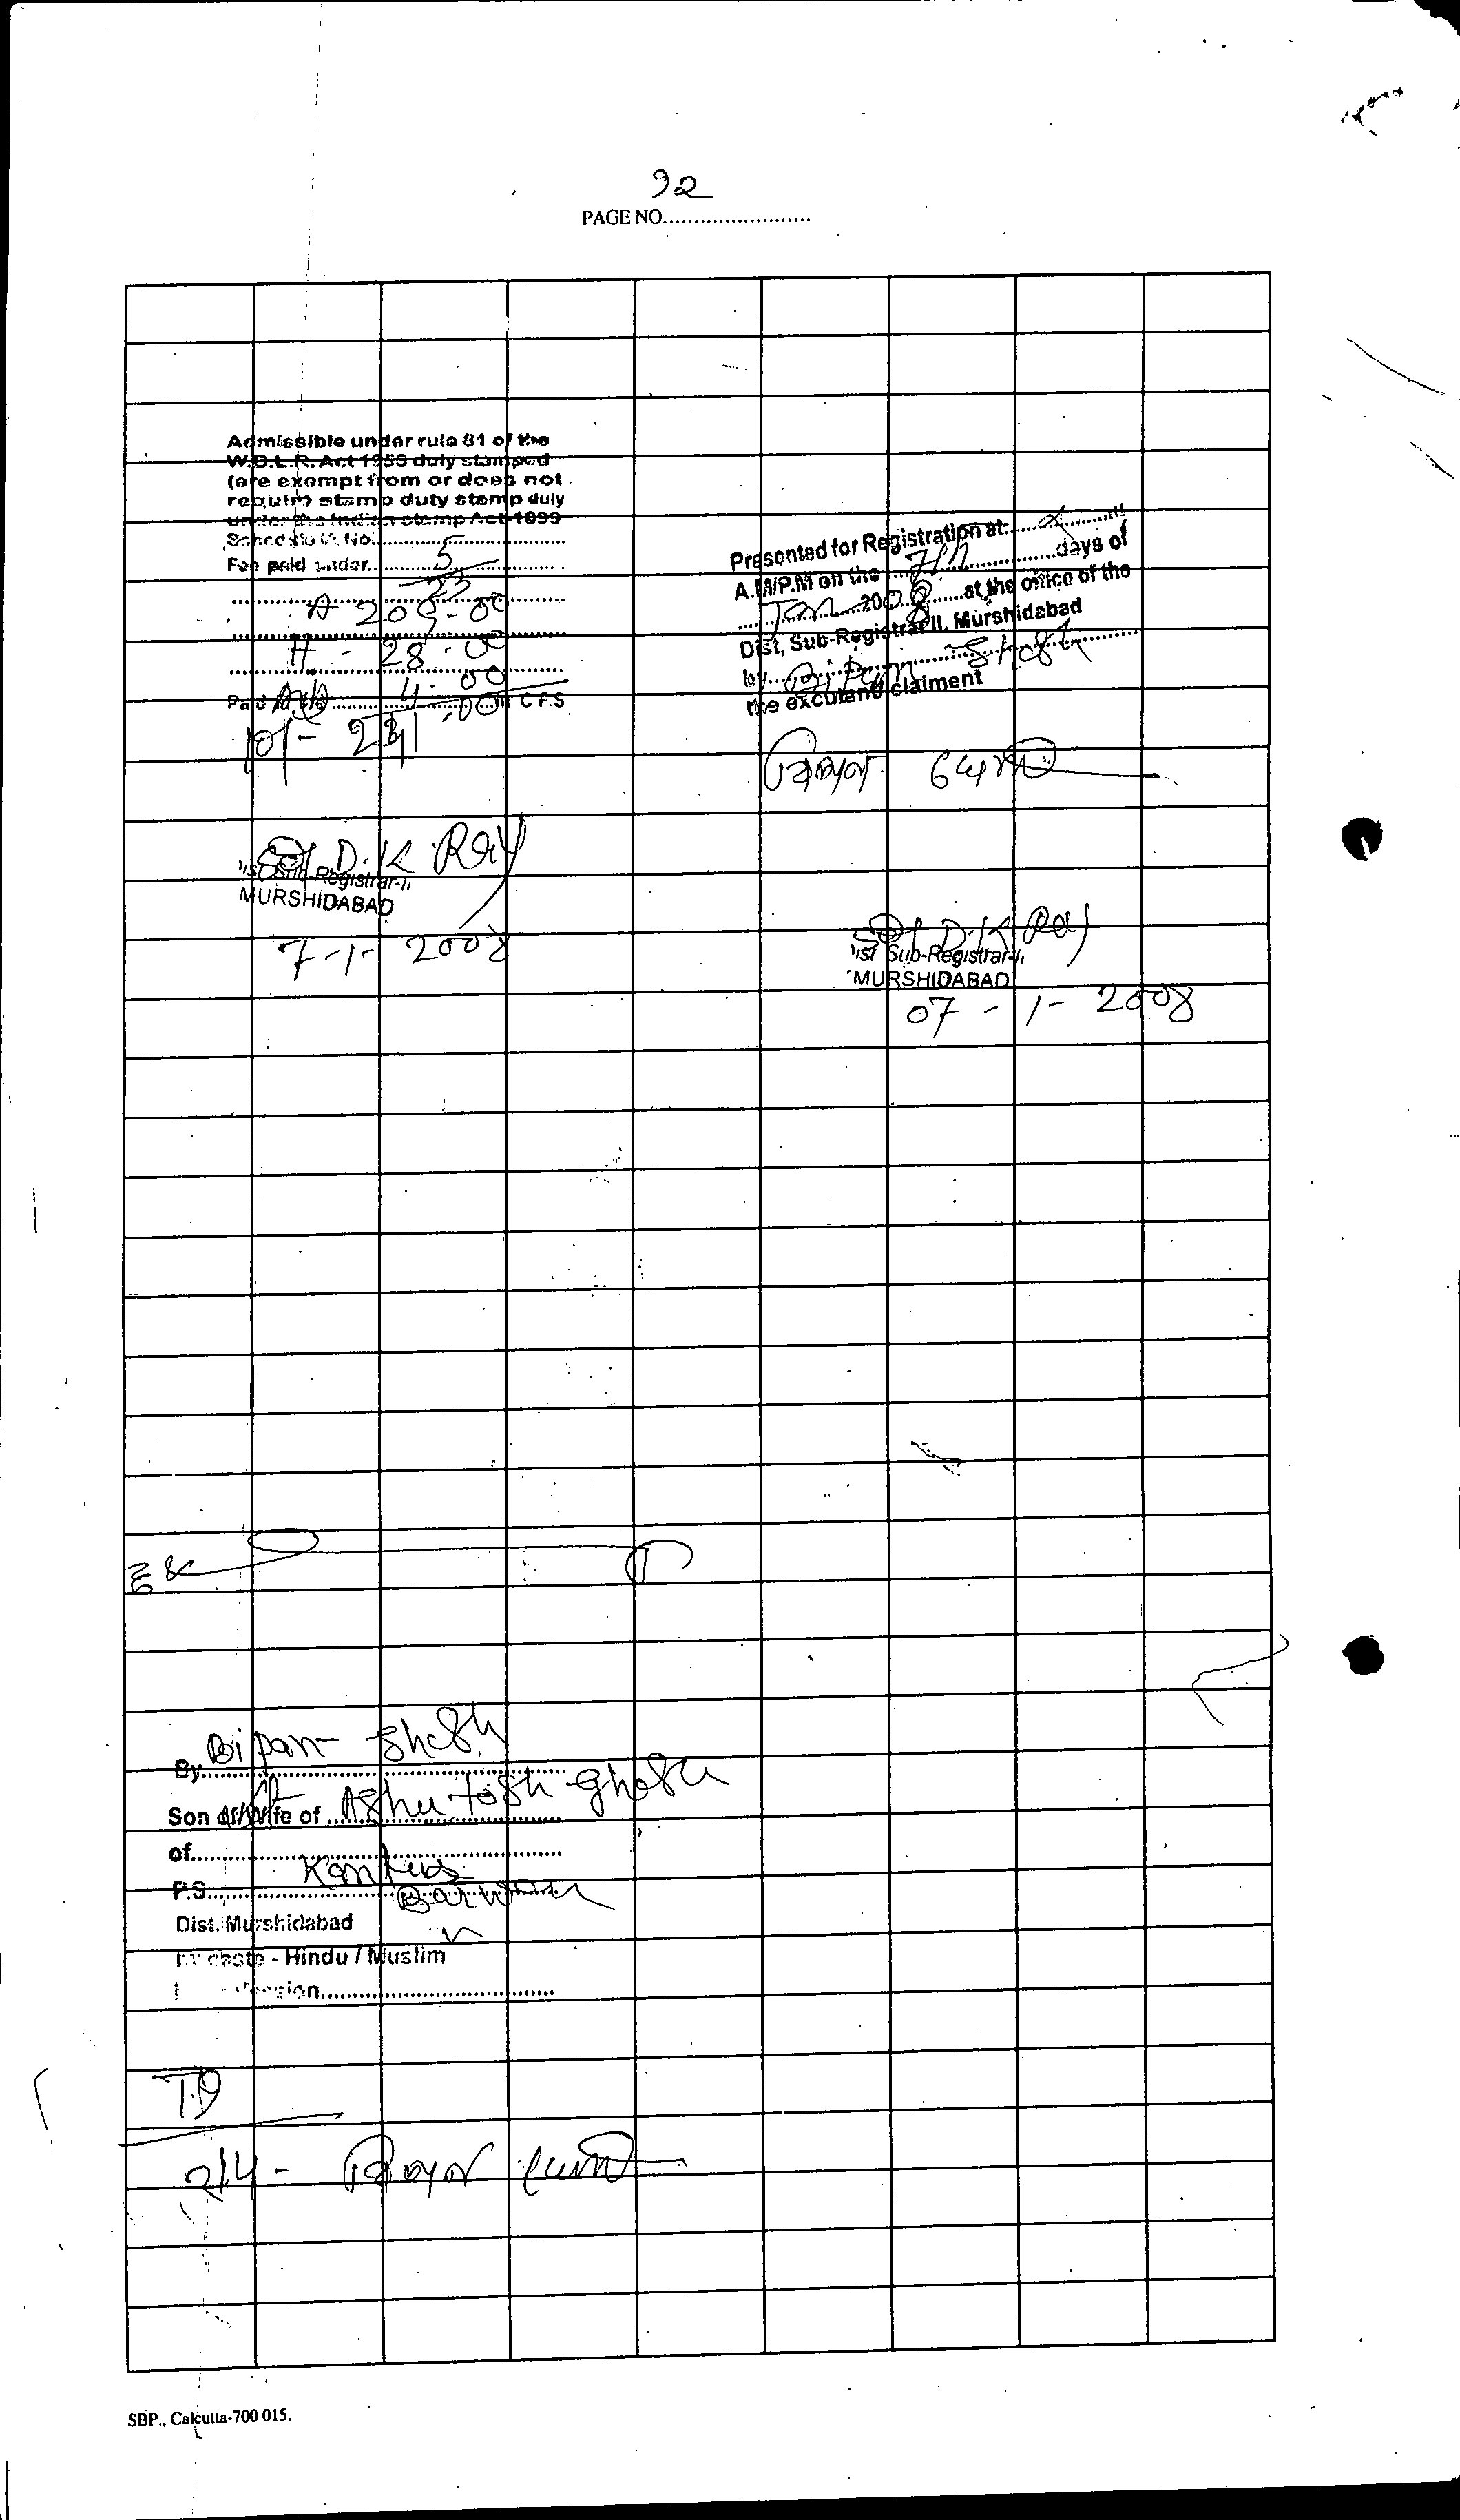 92
PAGE NO........................
Admissible under rule 81 of the
W.B.L.R. Act 1959 duly stamped
(are exempt from or does not
require stamp duty stamp duly
under the Indian stamp Act 1899
Schedule No.
Fee paid under 5
23
A 209-00
H - 28-00
4-00
Paid in C.F.S
241-00
D.K Ray
Dist Sub-Registrar-II
MURSHIDABAD
7-1-2008
Presented for Registration at
A.M/P.M on the 7th days of
Jan 2008 at the office of the
Dist, Sub-Registrar II, Murshidabad
by Bipan Ghosh
the excutant/ claiment
বিপান ঘোষ
D.K Ray
Dist Sub-Registrar-II
MURSHIDABAD
07-1-2008
By Bipan Ghosh
Son of/Wife of Ashutosh Ghosh
of
P.S
Dist. Murshidabad
By caste - Hindu / Muslim
বিপান ঘোষ
SBP., Calcutta-700 015.